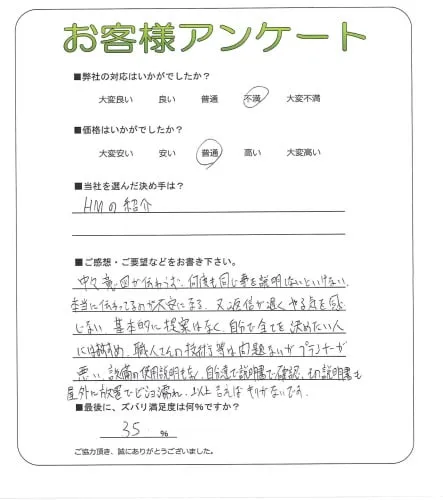 お客様アンケート
■弊社の対応はいかがでしたか?
大変良い 良い 普通 不満 大変不満
■価格はいかがでしたか?
大変安い 安い 普通 高い 大変高い
■当社を選んだ決め手は?
HMの紹介
■ご感想・ご要望などをお書き下さい。
中々意図が伝わらず、何度も同じ事を説明しないといけない。
本当に伝わってるのか不安になる。又返信が遅くやる気を感
じない。基本的に提案はなく、自分で全てを決めたい人
にはおすすめ。職人さんの技術等は問題ないがプランナーが
悪い。設備の使用説明もなく、自分達で説明書で確認、その説明書も
屋外に放置でビショ濡れ。以上言えばキリがないです。
■最後に、ズバリ満足度は何%ですか?
35 %
ご協力頂き、誠にありがとうございました。